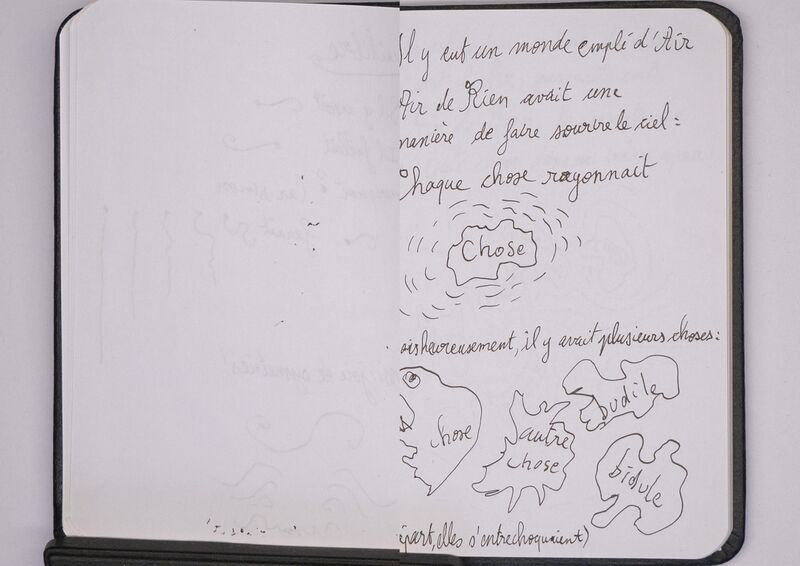 Il y eut un monde empli d'Air
Air de Rien avait une
manière de faire sourire le ciel:
Chaque chose rayonnait
Chose
aisheureusement, il y avait plusieurs choses:
chose
autre
chose
budile
bidule
épart, elles s'entrechoquaient)